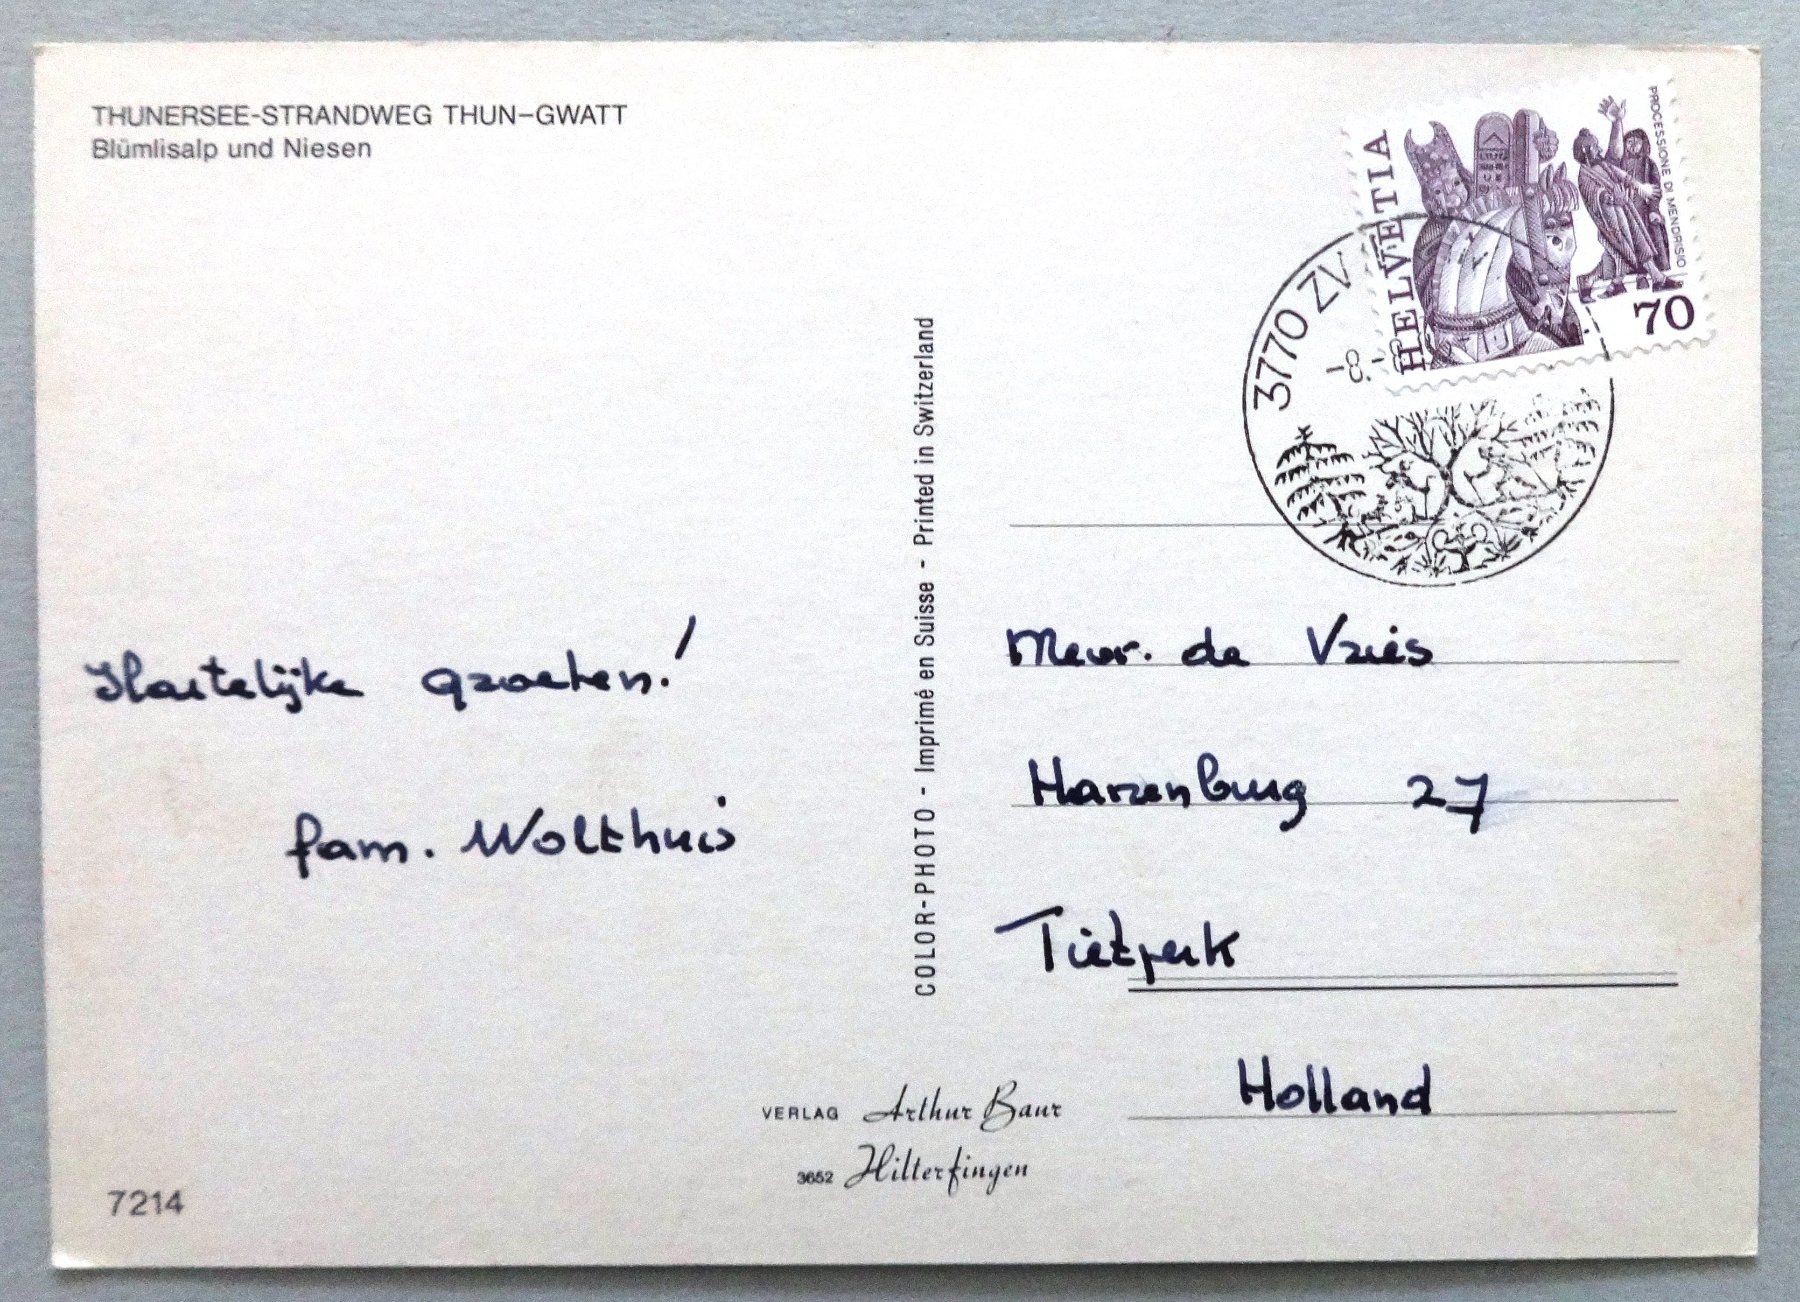 THUNERSEE-STRANDWEG THUN-GWATT
Blümlisalp und Niesen
HELVETIA
PROCESSIONE DI MENDRISIO
70
3770 ZW
-8.
Hartelijke groeten!
fam. Wolthuis
COLOR-PHOTO - Imprimé en Suisse - Printed in Switzerland
Mevr. de Vries
Harzenburg 27
Tietjerk
Holland
VERLAG Arthur Baur
3652 Hilterfingen
7214